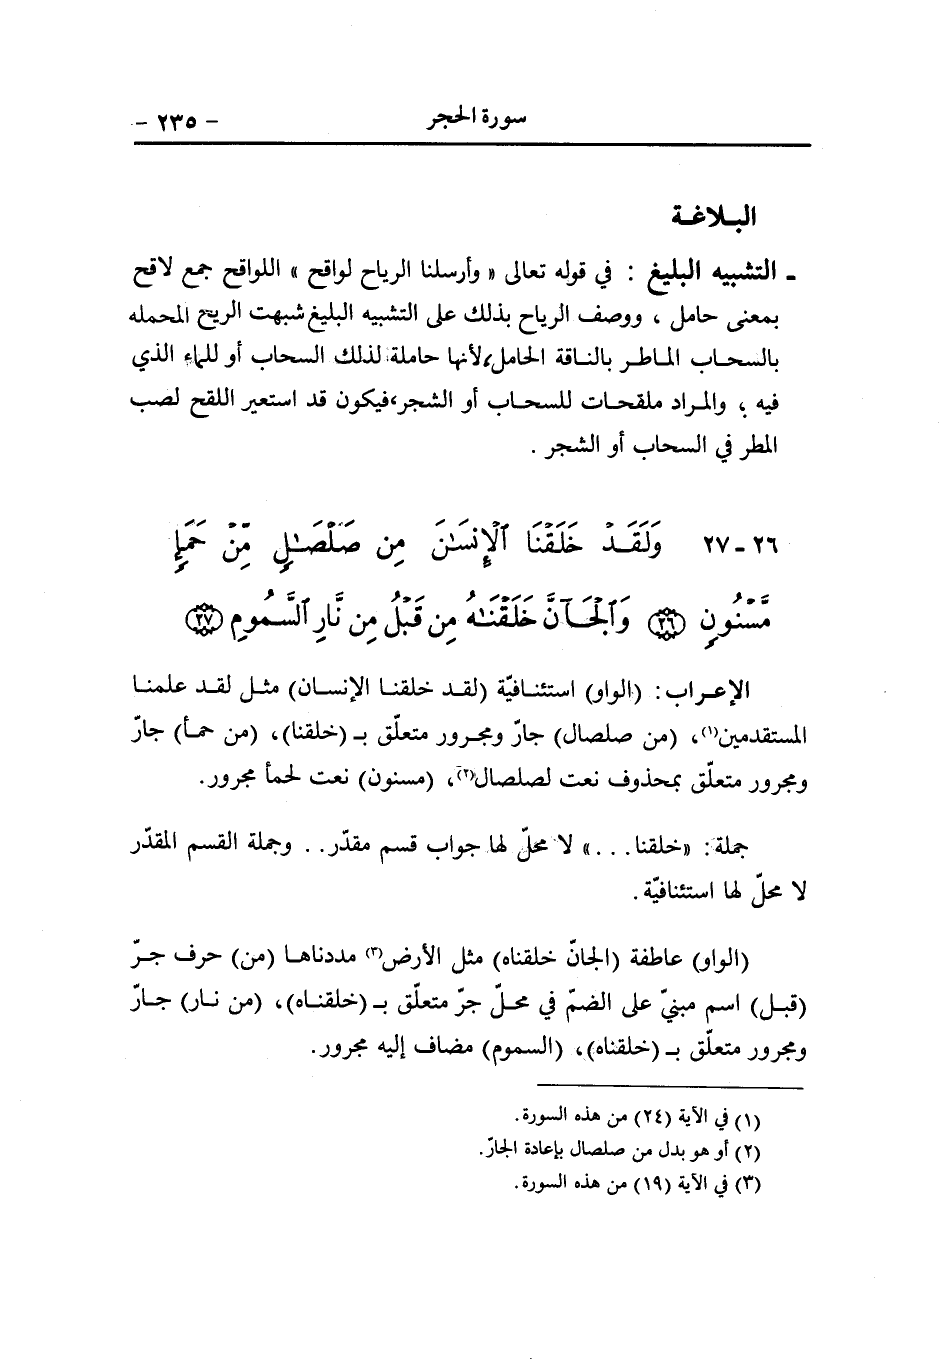 سورة الحجر
- ٢٣٥ -
البـلاغـة
ـ التشبيه البليغ : في قوله تعالى « وأرسلنا الرياح لواقح » اللواقح جمع لاقح
بمعنى حامل ، ووصف الرياح بذلك على التشبيه البليغ شبهت الريح المحمله
بالسحاب الماطر بالناقة الحامل، لأنها حاملة لذلك السحاب أو للماء الذي
فيه ، والمراد ملقحات للسحاب أو الشجر، فيكون قد استعير اللقح لصب
المطر في السحاب أو الشجر .
٢٦ - ٢٧ وَلَقَدْ خَلَقْنَا ٱلْإِنسَٰنَ مِن صَلْصَٰلٍ مِّنْ حَمَإٍ
مَّسْنُونٍ ﴿٢٦﴾ وَٱلْجَآنَّ خَلَقْنَٰهُ مِن قَبْلُ مِن نَّارِ ٱلسَّمُومِ ﴿٢٧﴾
الإعراب: (الواو) استئنافيّة (لقد خلقنا الإنسان) مثل لقد علمنا
المستقدمين(١)، (من صلصال) جارّ ومجرور متعلّق بـ (خلقنا)، (من حمأ) جارّ
ومجرور متعلّق بمحذوف نعت لصلصال(٢)، (مسنون) نعت لحمأ مجرور.
جملة: «خلقنا...» لا محلّ لها جواب قسم مقدّر.. وجملة القسم المقدّر
لا محلّ لها استئنافيّة.
(الواو) عاطفة (الجانّ خلقناه) مثل الأرض(٣) مددناها (من) حرف جرّ
(قبل) اسم مبنيّ على الضمّ في محلّ جرّ متعلّق بـ (خلقناه)، (من نار) جارّ
ومجرور متعلّق بـ (خلقناه)، (السموم) مضاف إليه مجرور.
(١) في الآية (٢٤) من هذه السورة.
(٢) أو هو بدل من صلصال بإعادة الجارّ.
(٣) في الآية (١٩) من هذه السورة.